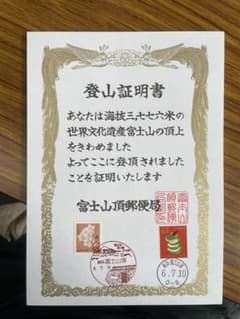 登山証明書
あなたは海抜三、七七六米の
世界文化遺産富士山の頂上
をきわめました
よってここに登頂されました
ことを証明いたします
富士山頂郵便局
富士山頂
6.7.10